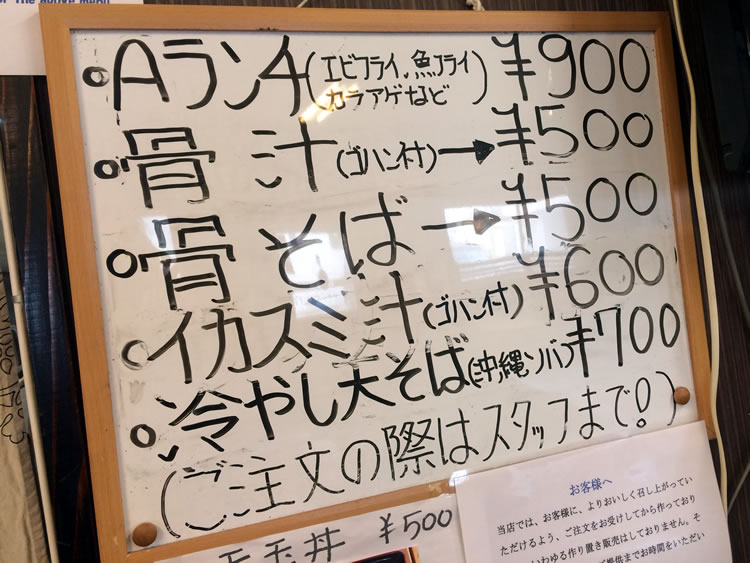 er the above menu
Aランチ(エビフライ、魚フライ
カラアゲなど) ¥900
骨汁(ゴハン付)→¥500
骨そば→¥500
イカスミ汁(ゴハン付)¥600
冷やし大そば(沖縄ソバ)¥700
(ご注文の際はスタッフまで!)
玉丼 ¥500
お客様へ
当店では、お客様に、よりおいしく召し上がってい
ただけるよう、ご注文をお受けしてから作っており
いわゆる作り置き販売はしておりません。そ
提供までお時間をいただい